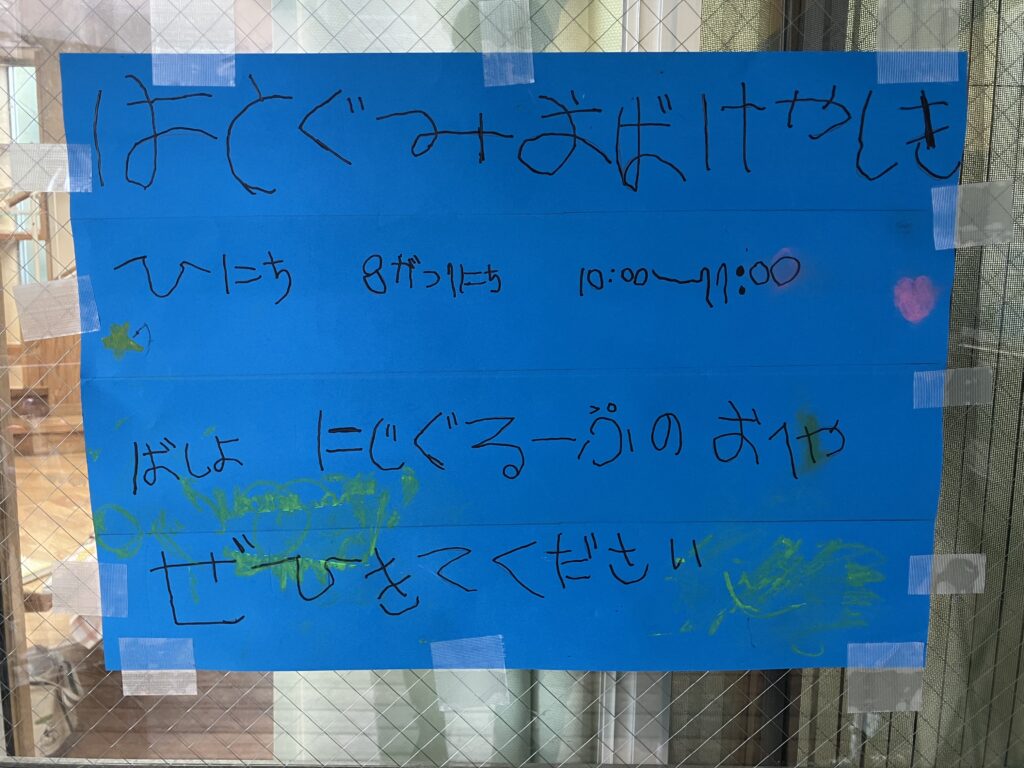 ほしぐみおばけやしき
ひにち 8がつ1にち 10:00〜11:00
ばしょ にじぐるーぷの おへや
ぜひきてください